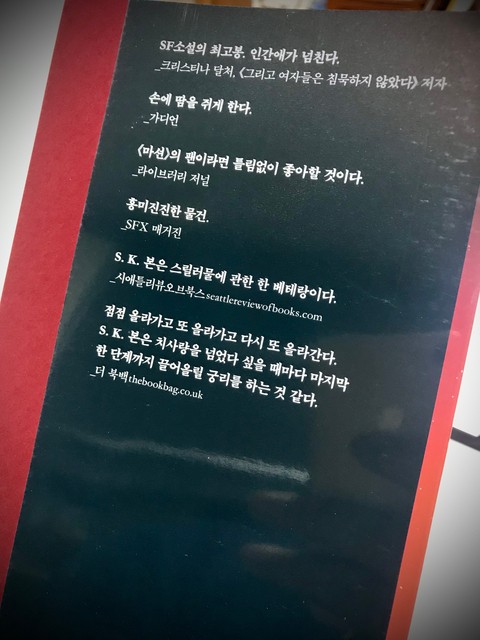 SF소설의 최고봉. 인간애가 넘친다.
_크리스티나 달처, 《그리고 여자들은 침묵하지 않았다》 저자
손에 땀을 쥐게 한다.
_가디언
《마션》의 팬이라면 틀림없이 좋아할 것이다.
_라이브러리 저널
흥미진진한 물건.
_SFX 매거진
S. K. 본은 스릴러물에 관한 한 베테랑이다.
_시애틀리뷰오브북스seattlereviewofbooks.com
점점 올라가고 또 올라가고 다시 또 올라간다.
S. K. 본은 치사량을 넘었다 싶을 때마다 마지막
한 단계까지 끌어올릴 궁리를 하는 것 같다.
_더 북백thebookbag.co.uk